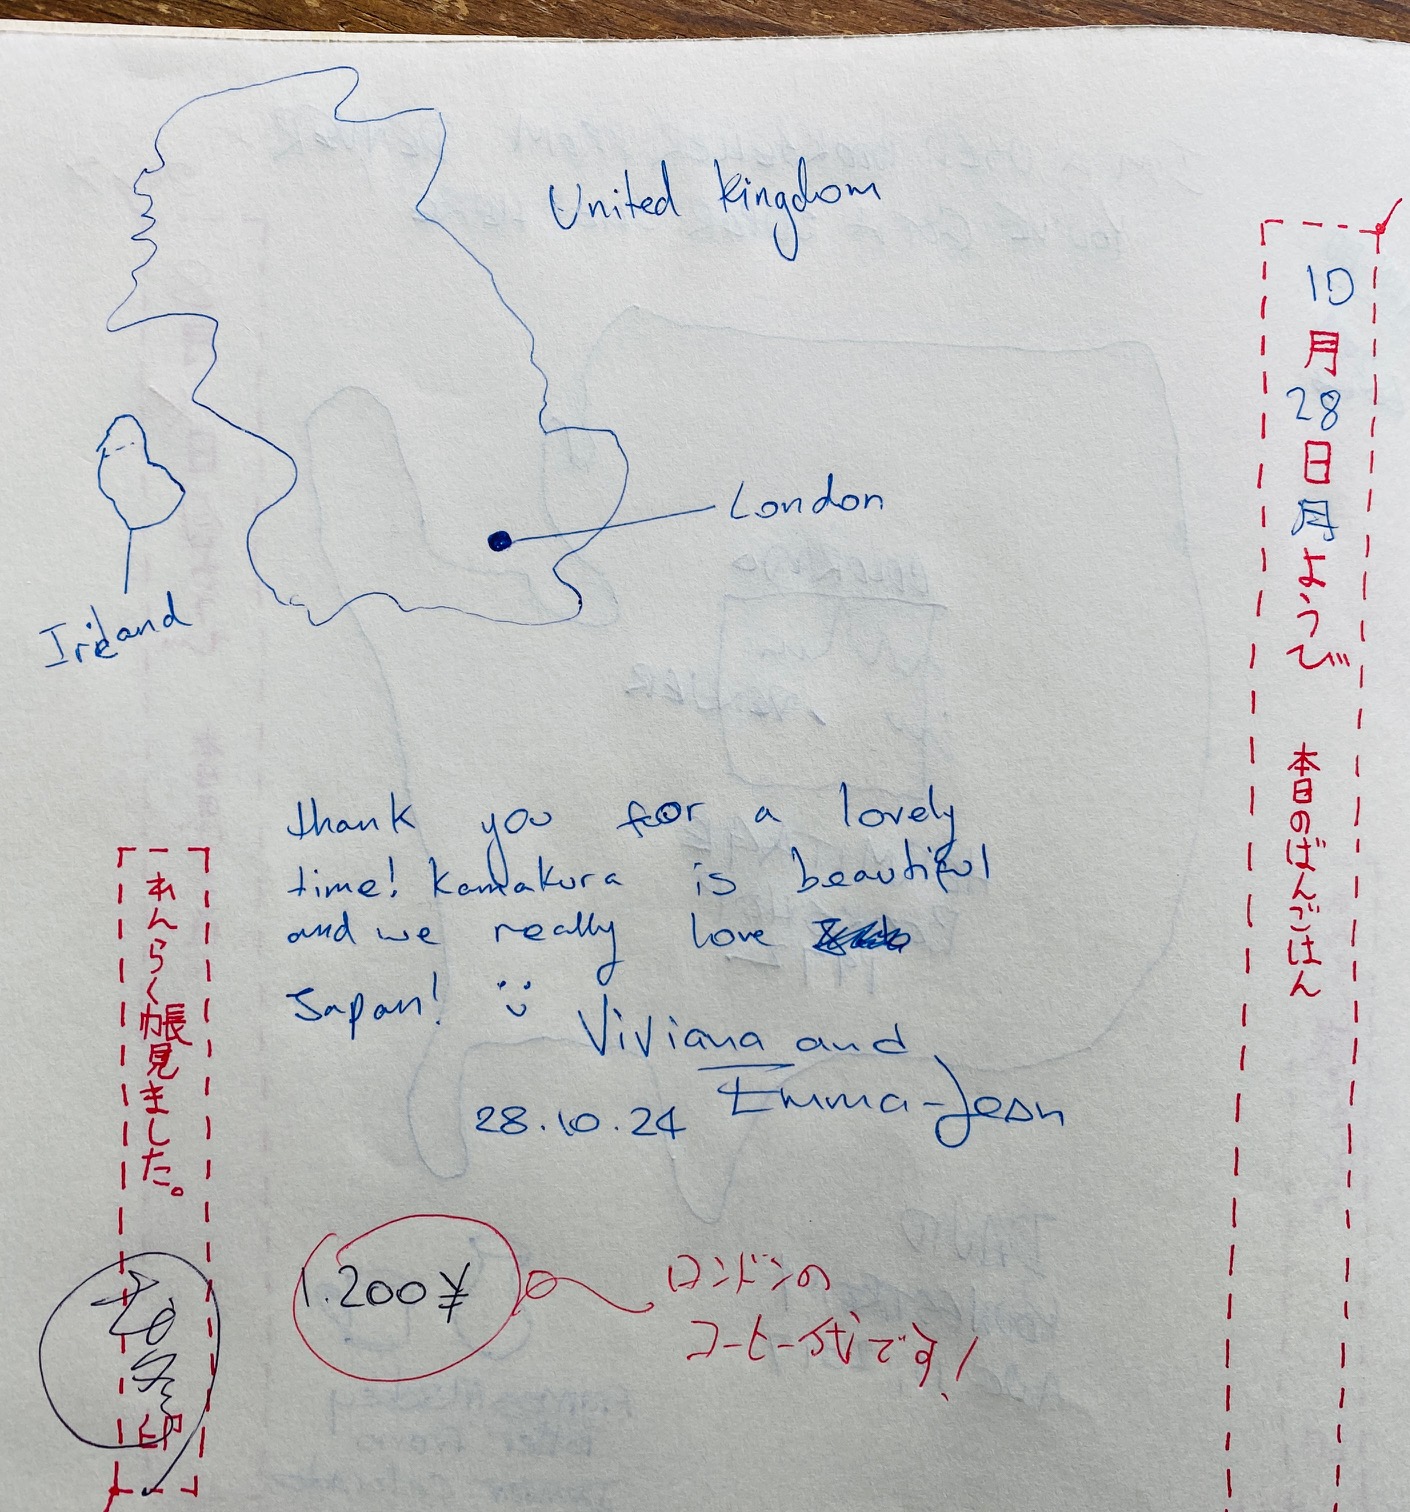 United Kingdom
London
Ireland
10月28日月ようび 本日のばんごはん
thank you for a lovely
time! Kamakura is beautiful
and we really love
Japan! :)
Viviana and
Emma-Jean
28.10.24
1.200¥
ロンドンの
コーヒー代です!
れんらく帳見ました。
印